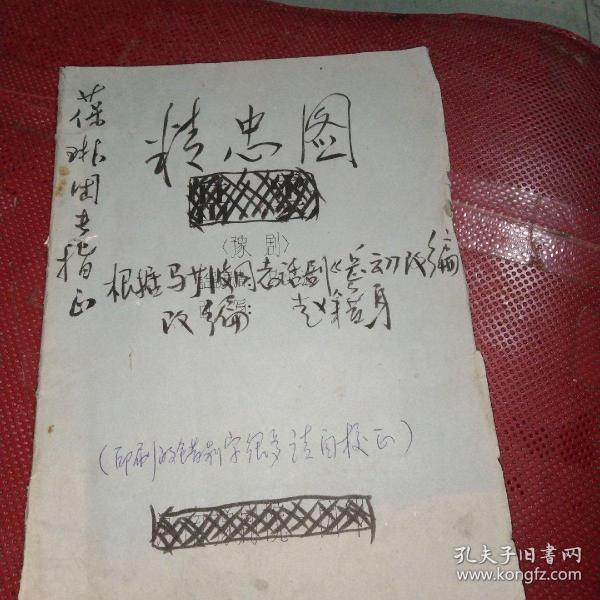 葆琳同志指正
精忠图
〈豫剧〉
根据马少波同志话剧《岳云》改编
改编 赵籍身
(印刷的错别字很多请自校正)
孔夫子旧书网
www.kongfz.com